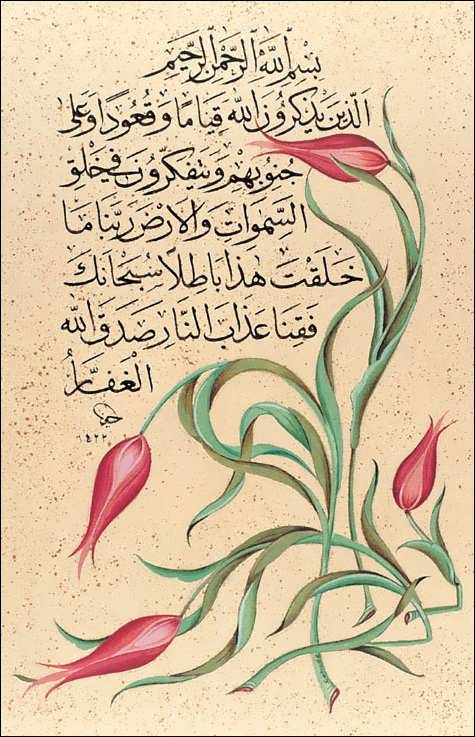 بِسْمِ اللهِ الرَّحْمٰنِ الرَّحِيمِ
الَّذِينَ يَذْكُرُونَ اللهَ قِيَامًا وَقُعُودًا وَعَلَى
جُنُوبِهِمْ وَيَتَفَكَّرُونَ فِي خَلْقِ
السَّمٰوَاتِ وَالْاَرْضِ رَبَّنَا مَا
خَلَقْتَ هٰذَا بَاطِلًا سُبْحَانَكَ
فَقِنَا عَذَابَ النَّارِ صَدَقَ اللهُ
الْغَفَّارُ
١٤٢٢